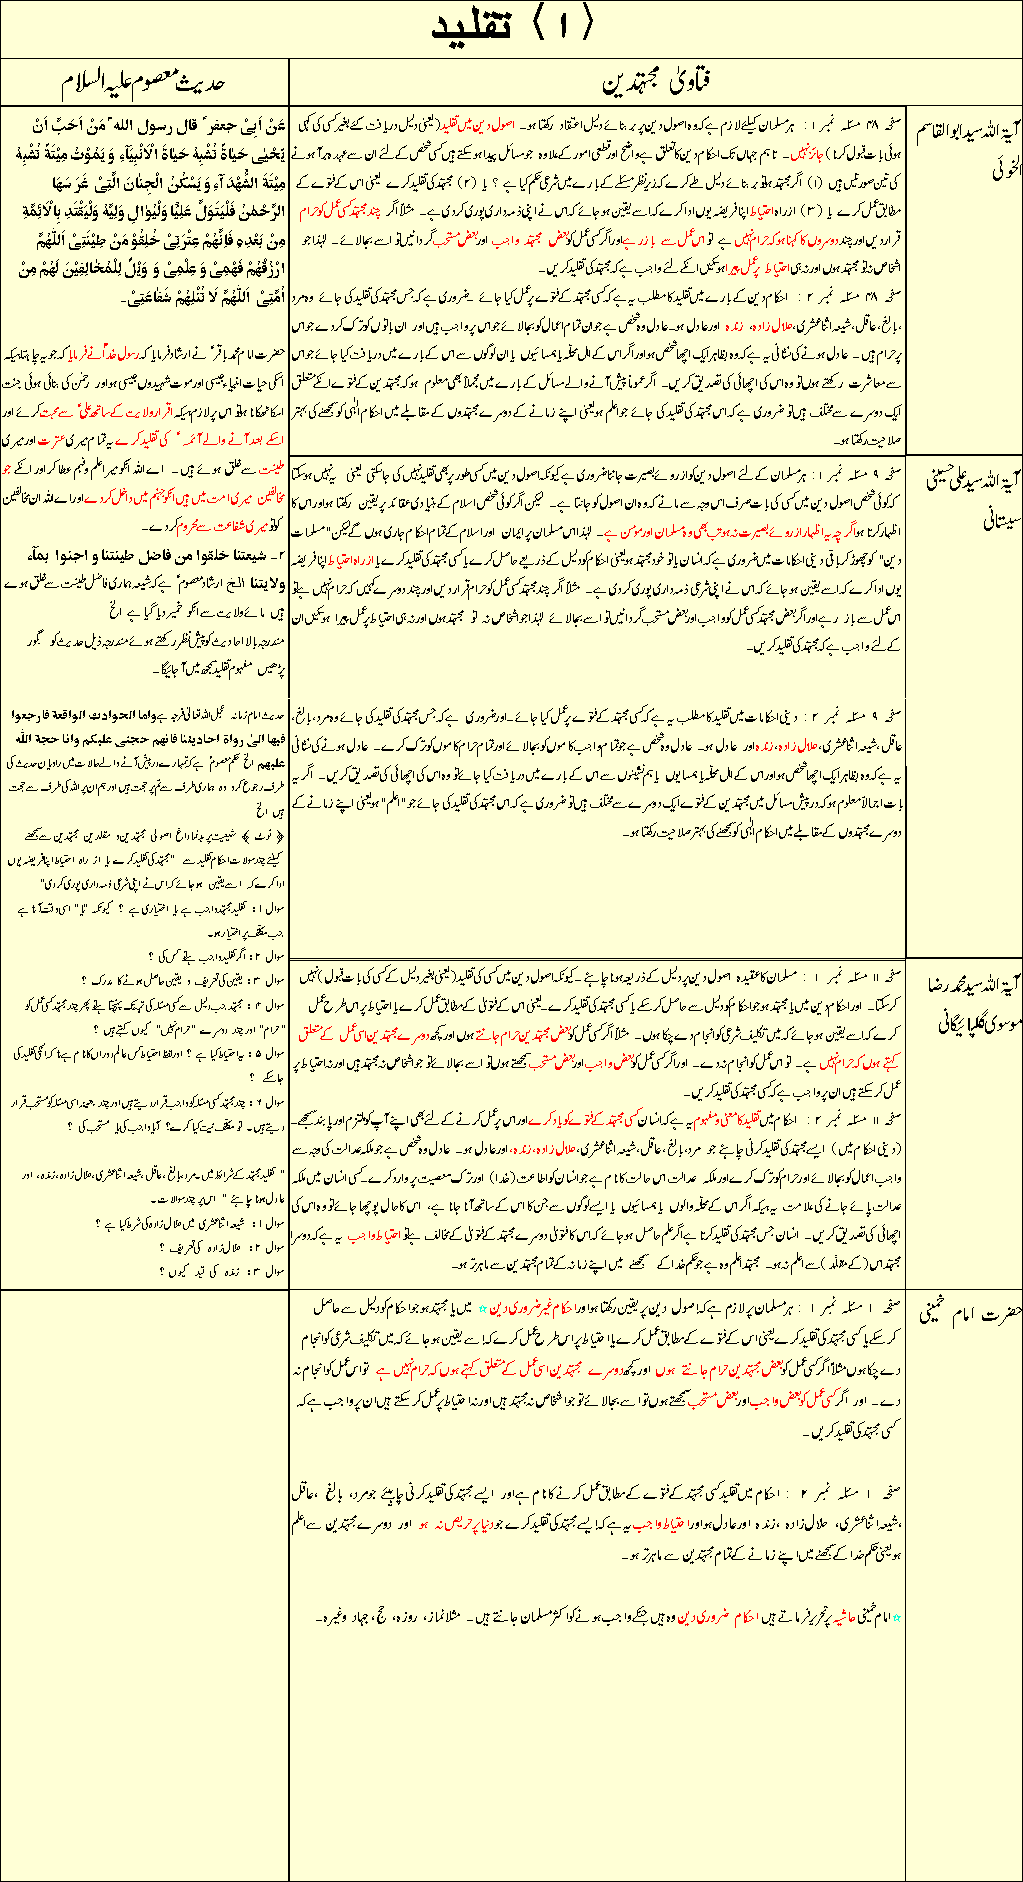 (۱) تقلید
فتاویٰ مجتہدین
حدیث معصوم علیہ السلام
آیۃ اللہ سید ابوالقاسم
الخوئی
صفحہ ۴۸ مسئلہ نمبر ۱ : ہر مسلمان کیلئے لازم ہے کہ وہ اصول دین پر بر بنائے دلیل اعتقاد رکھتا ہو۔ اصول دین میں تقلید (یعنی دلیل دریافت کئے بغیر کسی کی کہی
ہوئی بات قبول کرنا) جائز نہیں۔ تاہم جہاں تک احکام دین کا تعلق ہے واضح اور قطعی امور کے علاوہ جو مسائل پیدا ہو سکتے ہیں کسی شخص کے لئے ان سے عہدہ برآ ہونے
کی تین صورتیں ہیں (۱) اگر مجتہد ہو تو بر بنائے دلیل طے کرے کہ زیر نظر مسئلے کے بارے میں شرعی حکم کیا ہے ؟ یا (۲) مجتہد کی تقلید کرے یعنی اس کے فتوے کے
مطابق عمل کرے یا (۳) از راہ احتیاط اپنا فریضہ یوں ادا کرے کہ اسے یقین ہو جائے کہ اس نے اپنی ذمہ داری پوری کر دی ہے۔ مثلاً اگر چند مجتہد کسی عمل کو حرام
قرار دیں اور چند دوسروں کا کہنا ہو کہ حرام نہیں ہے تو اس عمل سے باز رہے اور اگر کسی عمل کو بعض مجتہد واجب اور بعض مستحب گردانیں تو اسے بجالائے۔ لہٰذا جو
اشخاص نہ تو مجتہد ہوں اور نہ ہی احتیاط پر عمل پیرا ہو سکیں انکے لئے واجب ہے کہ مجتہد کی تقلید کریں۔
صفحہ ۴۸ مسئلہ نمبر ۲ : احکام دین کے بارے میں تقلید کا مطلب یہ ہے کہ کسی مجتہد کے فتوے پر عمل کیا جائے۔ ضروری ہے کہ جس مجتہد کی تقلید کی جائے وہ مرد
،بالغ، عاقل، شیعہ اثنا عشری، حلال زادہ، زندہ اور عادل ہو۔ عادل وہ شخص ہے جو ان تمام اعمال کو بجالائے جو اس پر واجب ہیں اور ان باتوں کو ترک کر دے جو اس
پر حرام ہیں۔ عادل ہونے کی نشانی یہ ہے کہ وہ بظاہر ایک اچھا شخص ہو اور اگر اس کے اہل محلہ یا ہمسایوں یا ان لوگوں سے اس کے بارے میں دریافت کیا جائے جو اس
سے معاشرت رکھتے ہوں تو وہ اس کی اچھائی کی تصدیق کریں۔ اگر عموماً پیش آنے والے مسائل کے بارے میں مجملاً بھی معلوم ہو کہ مجتہدین کے فتوے انکے متعلق
ایک دوسرے سے مختلف ہیں تو ضروری ہے کہ اس مجتہد کی تقلید کی جائے جو اعلم ہو یعنی اپنے زمانے کے دوسرے مجتہدوں کے مقابلے میں احکام الٰہی کو سمجھنے کی بہتر
صلاحیت رکھتا ہو۔
آیۃ اللہ سید علی حسینی
سیستانی
صفحہ ۹ مسئلہ نمبر ۱ : ہر مسلمان کے لئے اصول دین کو از روئے بصیرت جاننا ضروری ہے کیونکہ اصول دین میں کسی طور پر بھی تقلید نہیں کی جا سکتی یعنی یہ نہیں ہو سکتا
کہ کوئی شخص اصول دین میں کسی کی بات صرف اس وجہ سے مانے کہ وہ ان اصول کو جانتا ہے۔ لیکن اگر کوئی شخص اسلام کے بنیادی عقائد پر یقین رکھتا ہو اور اس کا
اظہار کرتا ہو اگرچہ یہ اظہار از روئے بصیرت نہ ہو تب بھی وہ مسلمان اور مومن ہے۔ لہٰذا اس مسلمان پر ایمان اور اسلام کے تمام احکام جاری ہوں گے لیکن "مسلمات
دین" کو چھوڑ کر باقی دینی احکامات میں ضروری ہے کہ انسان یا تو خود مجتہد ہو یعنی احکام کو دلیل کے ذریعے حاصل کرے یا کسی مجتہد کی تقلید کرے یا از راہ احتیاط اپنا فریضہ
یوں ادا کرے کہ اسے یقین ہو جائے کہ اس نے اپنی شرعی ذمہ داری پوری کر دی ہے۔ مثلاً اگر چند مجتہد کسی عمل کو حرام قرار دیں اور چند دوسرے کہیں کہ حرام نہیں ہے تو
اس عمل سے باز رہے اور اگر بعض مجتہد کسی عمل کو واجب اور بعض مستحب گردانیں تو اسے بجالائے لہٰذا جو اشخاص نہ تو مجتہد ہوں اور نہ ہی احتیاط پر عمل پیرا ہو سکیں ان
کے لئے واجب ہے کہ مجتہد کی تقلید کریں۔
صفحہ ۹ مسئلہ نمبر ۲ : دینی احکامات میں تقلید کا مطلب یہ ہے کہ کسی مجتہد کے فتوے پر عمل کیا جائے۔ اور ضروری ہے کہ جس مجتہد کی تقلید کی جائے وہ مرد، بالغ،
عاقل، شیعہ اثنا عشری، حلال زادہ، زندہ اور عادل ہو۔ عادل وہ شخص ہے جو تمام واجب کاموں کو بجالائے اور تمام حرام کاموں کو ترک کرے۔ عادل ہونے کی نشانی
یہ ہے کہ وہ بظاہر ایک اچھا شخص ہو اور اس کے اہل محلہ یا ہمسایوں یا ہم نشینوں سے اس کے بارے میں دریافت کیا جائے تو وہ اس کی اچھائی کی تصدیق کریں۔ اگر یہ
بات اجمالاً معلوم ہو کہ درپیش مسائل میں مجتہدین کے فتوے ایک دوسرے سے مختلف ہیں تو ضروری ہے کہ اس مجتہد کی تقلید کی جائے جو "اعلم" ہو یعنی اپنے زمانے کے
دوسرے مجتہدوں کے مقابلے میں احکام الٰہی کو سمجھنے کی بہتر صلاحیت رکھتا ہو۔
آیۃ اللہ سید محمد رضا
موسوی گلپائیگانی
صفحہ ۱۱ مسئلہ نمبر ۱ : مسلمان کا عقیدہ اصول دین پر دلیل کے ذریعہ ہونا چاہئے۔ کیونکہ اصول دین میں کسی کی تقلید (یعنی بغیر دلیل کے کسی کی بات قبول) نہیں
کر سکتا۔ اور احکام دین میں یا مجتہد ہو جو احکام کو دلیل سے حاصل کر سکے یا کسی مجتہد کی تقلید کرے۔ یعنی اس کے فتویٰ کے مطابق عمل کرے یا احتیاط پر اس طرح عمل
کرے کہ اسے یقین ہو جائے کہ میں تکلیف شرعی کو انجام دے چکا ہوں۔ مثلاً اگر کسی عمل کو بعض مجتہدین حرام جانتے ہوں اور کچھ دوسرے مجتہدین اسی عمل کے متعلق
کہتے ہوں کہ حرام نہیں ہے۔ تو اس عمل کو انجام نہ دے۔ اور اگر کسی عمل کو بعض واجب اور بعض مستحب سمجھتے ہوں تو اسے بجالائے تو جو اشخاص نہ مجتہد ہیں اور نہ احتیاط پر
عمل کر سکتے ہیں ان پر واجب ہے کہ کسی مجتہد کی تقلید کریں۔
صفحہ ۱۱ مسئلہ نمبر ۲ : احکام میں تقلید کا معنی و مفہوم یہ ہے کہ انسان کسی مجتہد کے فتوے کو یاد کرے اور اس پر عمل کرنے کے لئے بھی اپنے آپ کو ملتزم اور پابند سمجھے۔
(دینی احکام میں) ایسے مجتہد کی تقلید کرنی چاہئے جو مرد، بالغ، عاقل، شیعہ اثنا عشری، حلال زادہ، زندہ، اور عادل ہو۔ عادل وہ شخص ہے جو ملکہ عدالت کی وجہ سے
واجب اعمال کو بجالائے اور حرام کو ترک کرے اور ملکہ عدالت اس حالت کا نام ہے جو انسان کو اطاعت (خدا) اور ترک معصیت پر وادار کرے۔ کسی انسان میں ملکہ
عدالت پائے جانے کی علامت یہ ہے کہ اگر اس کے محلہ والوں یا ہمسائیوں یا ایسے لوگوں سے جن کا اس کے ساتھ آنا جانا ہے، اس کا حال پوچھا جائے تو وہ اس کی
اچھائی کی تصدیق کریں۔ انسان جس مجتہد کی تقلید کرتا ہے اگر علم حاصل ہو جائے کہ اس کا فتویٰ دوسرے مجتہد کے فتویٰ کے مخالف ہے تو احتیاط واجب یہ ہے کہ دوسرا
مجتہد اس (کے مقلَد) سے اعلم نہ ہو۔ مجتہد اعلم وہ ہے جو حکم خدا کے سمجھنے میں اپنے زمانہ کے تمام مجتہدین سے ماہر تر ہو۔
حضرت امام خمینی
صفحہ ۱ مسئلہ نمبر ۱ : ہر مسلمان پر لازم ہے کہ اصول دین پر یقین رکھتا ہو اور احکام غیر ضروری دین ☆ میں یا مجتہد ہو جو احکام کو دلیل سے حاصل
کر سکے یا کسی مجتہد کی تقلید کرے یعنی اس کے فتوے کے مطابق عمل کرے یا احتیاط پر اس طرح عمل کرے کہ اسے یقین ہو جائے کہ میں تکلیف شرعی کو انجام
دے چکا ہوں مثلاً اگر کسی عمل کو بعض مجتہدین حرام جانتے ہوں اور کچھ دوسرے مجتہدین اسی عمل کے متعلق کہتے ہوں کہ حرام نہیں ہے تو اس عمل کو انجام نہ
دے۔ اور اگر کسی عمل کو بعض واجب اور بعض مستحب سمجھتے ہوں تو اسے بجالائے تو جو اشخاص نہ مجتہد ہیں اور نہ احتیاط پر عمل کر سکتے ہیں ان پر واجب ہے کہ
کسی مجتہد کی تقلید کریں۔
صفحہ ۱ مسئلہ نمبر ۲ : احکام میں تقلید کسی مجتہد کے فتوے کے مطابق عمل کرنے کا نام ہے اور ایسے مجتہد کی تقلید کرنی چاہیئے جو مرد، بالغ ،عاقل
،شیعہ اثنا عشری، حلال زادہ ،زندہ اور عادل ہو اور احتیاط واجب یہ ہے کہ ایسے مجتہد کی تقلید کرے جو دنیا پر حریص نہ ہو اور دوسرے مجتہدین سے اعلم
ہو یعنی حکم خدا کے سمجھنے میں اپنے زمانے کے تمام مجتہدین سے ماہر تر ہو۔
☆ امام خمینی حاشیہ پر تحریر فرماتے ہیں احکام ضروری دین وہ ہیں جنکے واجب ہونے کو اکثر مسلمان جانتے ہیں۔ مثلاً نماز، روزہ، حج، جہاد وغیرہ۔
عَنْ اَبِیْ جعفر ؑ قال رسول الله ؐ مَنْ اَحَبَّ اَنْ
یَّحْیٰی حَیَاةً تُشْبِهُ حَیَاةَ الْاَنْبِیَآءِ وَ یَمُوْتُ مِیْتَةً تُشْبِهُ
مِیْتَةَ الشُّهْدَآءِ وَ یَسْکُنُ الْجِنَانَ الَّتِیْ غَرَسَهَا
الرَّحْمٰنُ فَلْیَتَوَلَّ عَلِیًّا وَلْیُوَالِ وَلِیَّهُ وَلْیَقْتَدِ بِالْاَئِمَّةِ
مِنْ بَعْدِهِ فَاِنَّهُمْ عِتْرَتِیْ خُلِقُوْ مَنْ طِیْنَتِیْ اَللّٰهُمَّ
ارْزُقْهُمْ فَهْمِیْ وَ عِلْمِیْ وَ وَیْلٌ لِلْمُخَالِفِیْنَ لَهُمْ مِنْ
اُمَّتِیْ اَللّٰهُمَّ لَا تُنِلْهُمْ شَفَاعَتِیْ۔
حضرت امام محمد باقر ؑ نے ارشاد فرمایا کہ رسول خدا ؐ نے فرمایا کہ جو یہ چاہتا ہے کہ
اسکی حیات انبیاء جیسی اور موت شہیدوں جیسی ہو اور رحمٰن کی بنائی ہوئی جنت
اسکا ٹھکانا ہو تو اس پر لازم ہے کہ اقرار ولایت کے ساتھ علی ؑ سے محبت کرئے اور
اسکے بعد آنے والے آئمہ ؑ کی تقلید کرے یہ تمام میری عترت اور میری
طینت سے خلق ہوئے ہیں۔ اے اللہ انکو میرا علم و فہم عطا کر اور انکے جو
مخالفین میری امت میں ہیں انکو جہنم میں داخل کردے اور اے اللہ ان مخالفین
کو تو میری شفاعت سے محروم کردے۔
۲۔ شیعتنا خلقوا من فاضل طینتنا و اجنوا بمآء
ولایتنا الخ ارشاد معصوم ؑ ہے کہ شیعہ ہماری فاضل طینت سے خلق ہوے
ہیں مائے ولایت سے انکو خمیر دیا گیا ہے الخ
مندرجہ بالا احادیث کو پیش نظر رکھتے ہوئے مندرجہ ذیل حدیث کو بغور
پڑھیں مفہوم تقلید سمجھ میں آ جائیگا۔
حدیث امام زمانہ عجل اللہ تعالیٰ فرجہ ہے واما الحوادث الواقعة فارجعوا
فیها الیٰ رواة احادیثنا فانهم حجتی علیکم وانا حجة الله
علیهم الخ حکم معصوم ؑ ہے کہ تمہارے درپیش آنے والے حالات میں راویان حدیث کی
طرف رجوع کرو وہ ہماری طرف سے تم پر حجت ہیں اور ہم ان پر اللہ کی طرف سے حجت
ہیں الخ
﴿ نوٹ ﴾ شیعیت پر بدنما داغ اصولی مجتہدین و مقلدین مجتہدین سے سمجھنے
کیلئے چند سوالات احکام تقلید سے "مجتہد کی تقلید کرے یا از راہ احتیاط اپنا فریضہ یوں
ادا کرے کہ اسے یقین ہو جائے کہ اس نے اپنی شرعی ذمہ داری پوری کر دی"
سوال ۱ : تقلید مجتہد واجب ہے یا اختیاری ہے ؟ کیونکہ "یا" اسی وقت آتا ہے
جب مکلف پر اختیار ہو۔
سوال ۲ : اگر تقلید واجب ہے تو کس کی ؟
سوال ۳ : یقین کی تعریف و یقین حاصل ہونے کا مدرک ؟
سوال ۴ : مجتہد جب دلیل سے کسی مسئلہ کی تہہ تک پہنچتا ہے تو پھر چند مجتہد کسی عمل کو
"حرام" اور چند دوسرے "حرام نہیں" کیوں کہتے ہیں ؟
سوال ۵ : یہ احتیاط کیا ہے ؟ اور لفظ احتیاط کس عالم دوراں کا نام ہے؟ تاکہ بھی تقلید کی
جا سکے ؟
سوال ۶ : چند مجتہد کسی مسئلہ کو واجب قرار دیتے ہیں اور چند بعینہ اسی مسئلہ کو مستحب قرار
دیتے ہیں۔ تو مکلف نیت کیا کرے؟ آیا واجب کی یا مستحب کی ؟
"تقلید مجتہد کے شرائط میں۔ مرد، بالغ ،عاقل ،شیعہ اثنا عشری، حلال زادہ ،زندہ، اور
عادل ہونا چاہئے" اس پر چند سوالات۔
سوال ۱ : شیعہ اثنا عشری میں حلال زادہ کی شرط کیا ہے ؟
سوال ۲ : حلال زادہ کی تعریف ؟
سوال ۳ : زندہ کی قید کیوں ؟